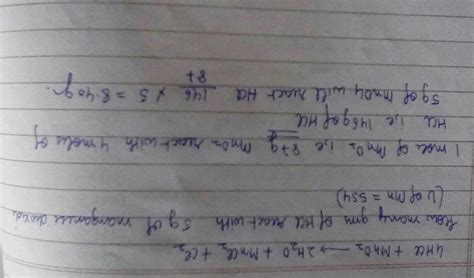 4HCl + MnO2 → 2H2O + MnCl2 + Cl2
How many gm of HCl react with 5g of manganese dioxid
(U of Mn = 554)
1 mole of MnO2 i.e 87g MnO2 react with 4 moles of
HCl i.e 146g of HCl
5g of MnO4 will react HCl 146/87 × 5 = 8.40g.